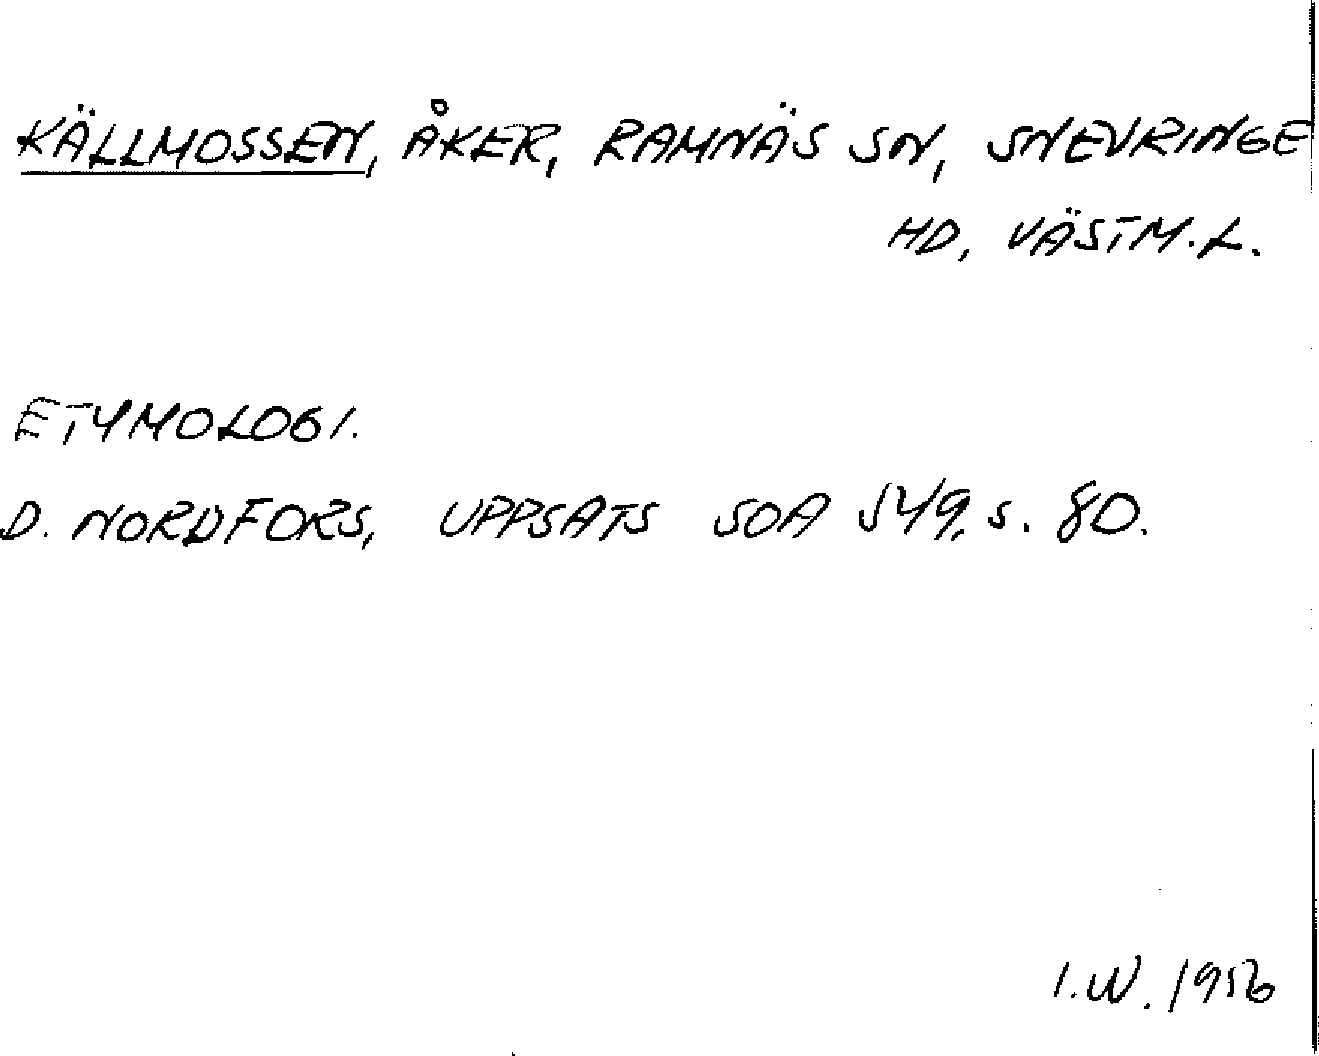 KÄLLMOSSEN, ÅKER, RAMNÄS SN, SNEVRINGE
HD, VÄSTM.L.
ETYMOLOGI.
D. NORDFORS, UPPSATS SOA 549, s. 80.
I.W. 1956